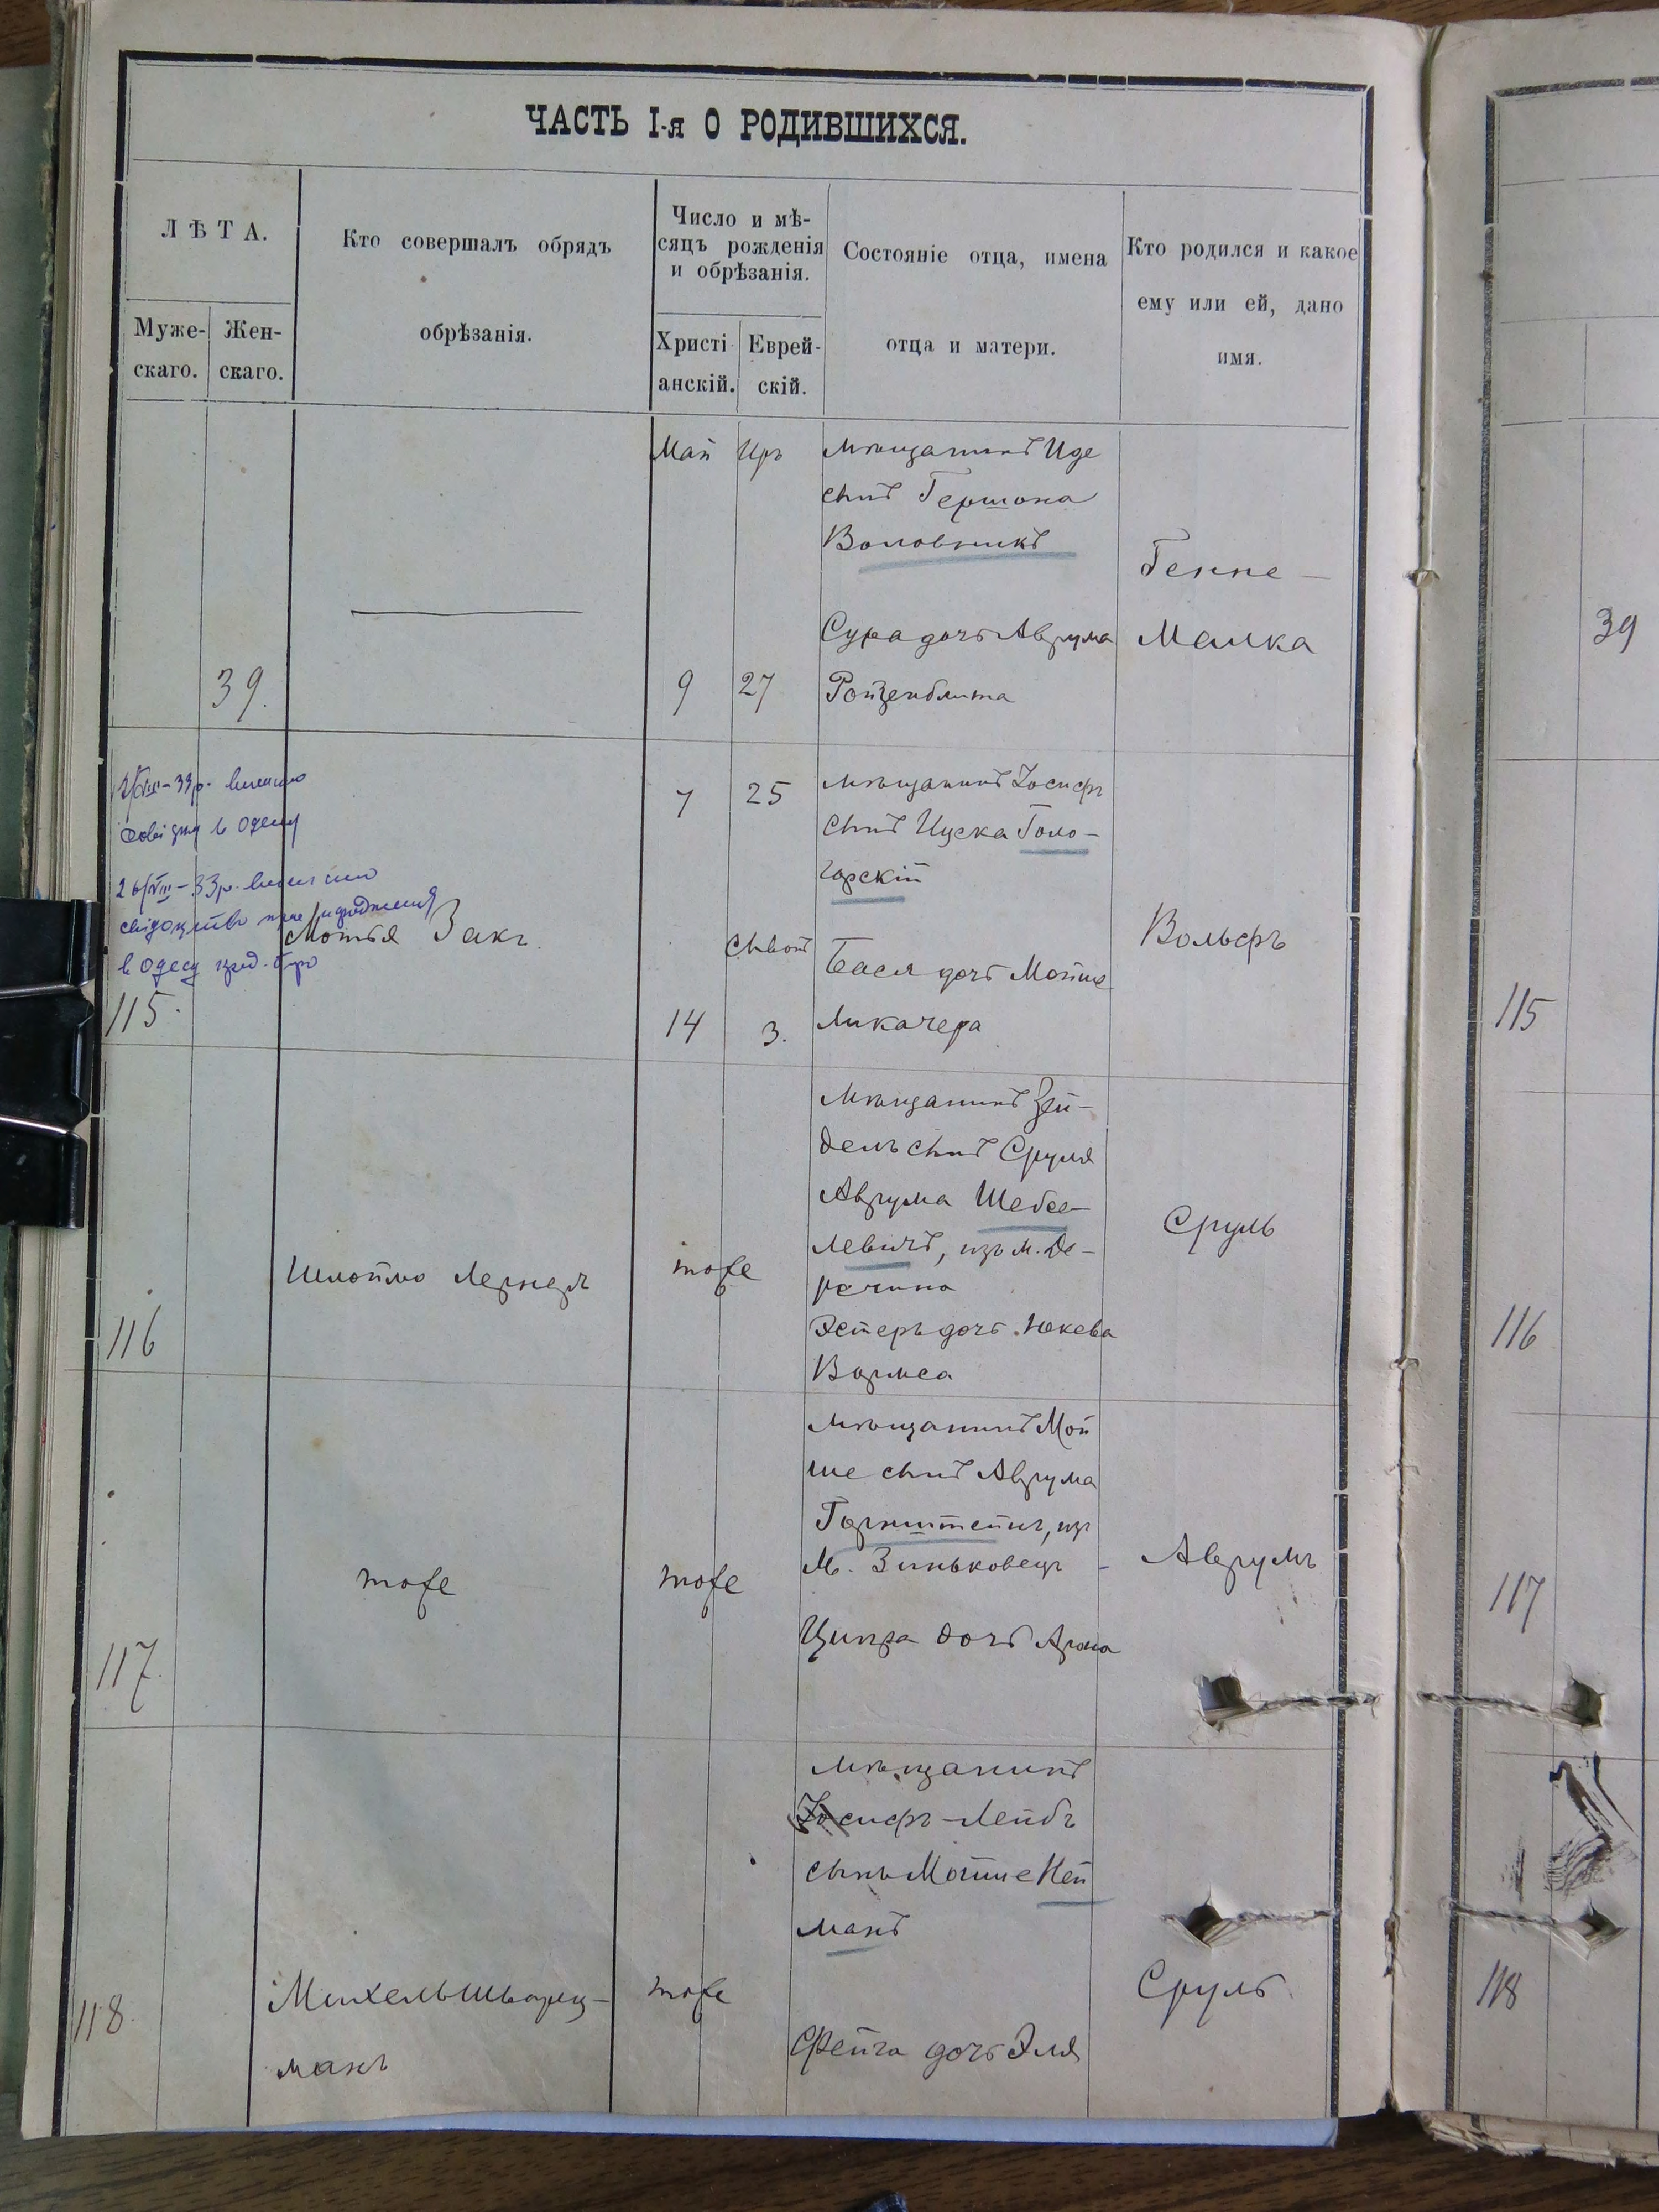 ЧАСТЬ I-я О РОДИВШИХСЯ.
ЛѢТА.
Муже-
скаго.
Жен-
скаго.
Кто совершалъ обрядъ
обрѣзанія.
Число и мѣ-
сяцъ рожденія
и обрѣзанія.
Христі
анскій.
Еврей-
скій.
Состояніе отца, имена
отца и матери.
Кто родился и какое
ему или ей, дано
имя.
39.
Май
9
Иръ
27
мѣщанинъ Иде
сынъ Гершона
Воловникъ
Сура дочь Аврума
Генне-
Малка
39
12/VIII-33р.
в Одесу
26/VIII-33р.
свідоцтво про народження
в Одесу
115.
Мотья Закъ.
7
25
Сивонъ
14
3.
мѣщанинъ Іосифъ
сынъ Ицека Голо-
горскій
Бася дочь Мотье
Ликачера
Вольфъ
115
116
Шлоймо Лернеръ
тоже
мѣщанинъ Зей-
дель сынъ Сруля
Аврума Шебсе-
левичъ, изъ м. Де-
рачина
Эстеръ дочь Юкева
Вармса
Сруль
116
117.
тоже
тоже
мѣщанинъ Мой
ше сынъ Аврума
Горнштейнъ, изъ
м. Зиньковецъ -
Ципра дочь Арона
Аврумъ
117
118.
Михель Шварц-
манъ
тоже
мѣщанинъ
Іосифъ-Лейбъ
сынъ Мойше Ней
манъ
Фейга дочь Эля
Сруль
118